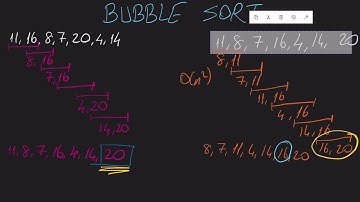 BUBBLE SORT
11, 16, 8, 7, 20, 4, 14
8, 16
7, 16
4, 20
14, 20
11, 8, 7, 16, 4, 14, 20
11, 8, 7, 16, 4, 14, 20
8, 11
O(n²)
7, 11
11, 16
4, 16
14, 16
16, 20
8, 7, 11, 4, 14 16 20